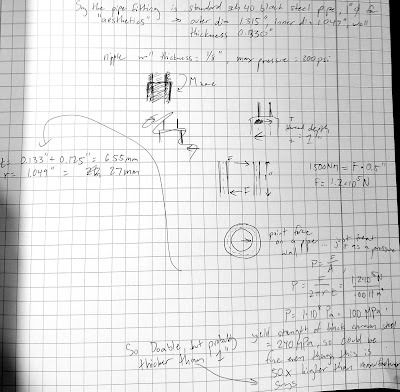 Say the pipe fitting is standard sch 40 black steel pipe, 1" ø for
"aesthetics" → outer dim 1.315", inner d = 1.049", wall
thickness 0.330"
nipple w" thickness = 1/8", max pressure = 300 psi
M max
T
thread depth
1"
t = 0.133" + 0.125" = 6.55mm
r = 1.049" = 27mm
F
1"
F
1500Nm = F · 0.5"
F = 1.2×10⁵N
point force
on a pipe... just treat
wall as a pressure
P = F/A
P = F/2πrt = 1.2·10⁵N/.0011m²
P = 1·10⁸ Pa = 100 MPa
yield strength of black
= 240MPa, so could be
fine even though this is
50X higher than manufacturer
says
So Doable, but probably
thicker than 1"